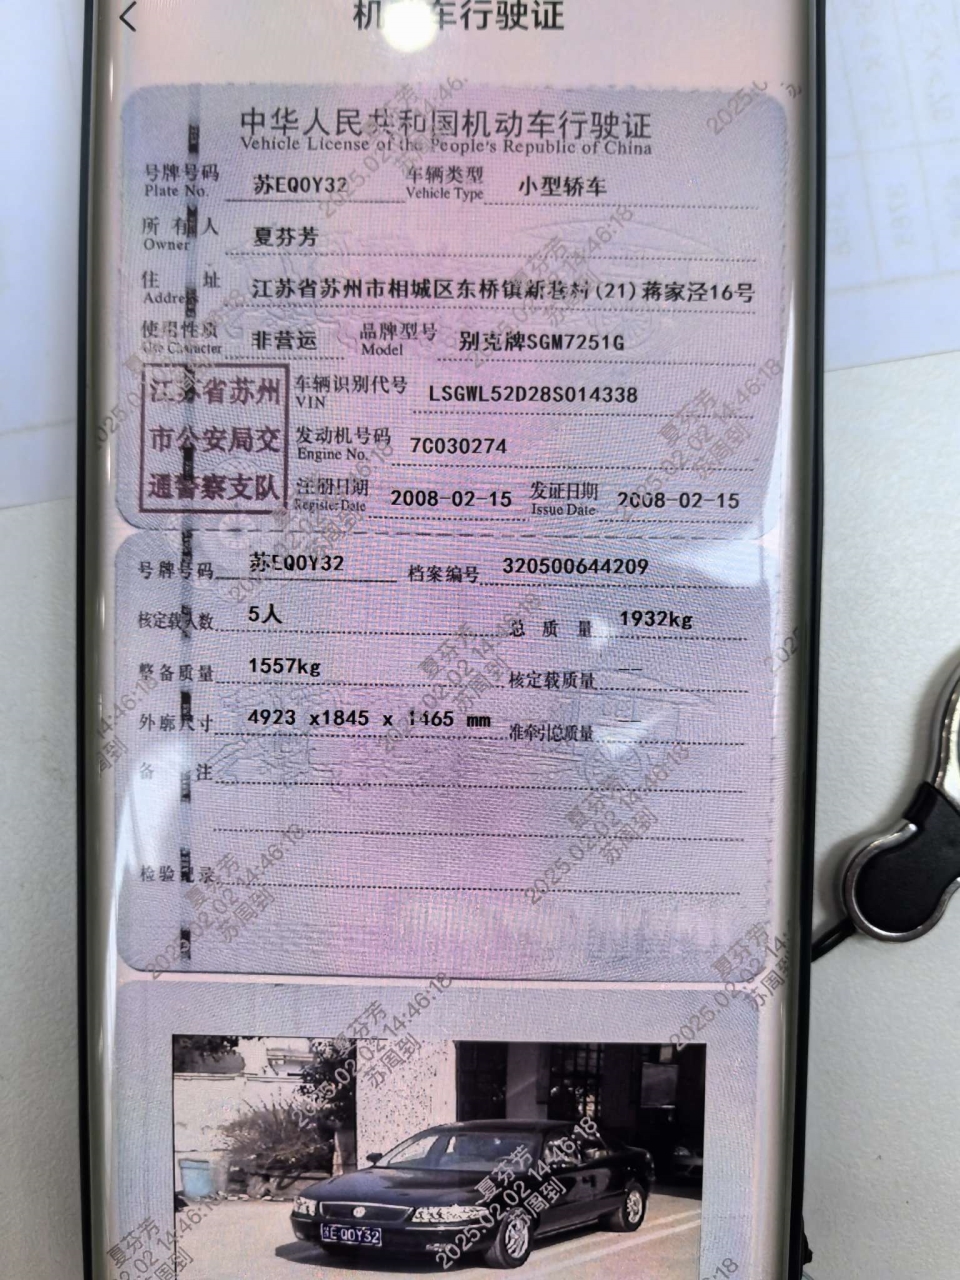 机动车行驶证
中华人民共和国机动车行驶证
Vehicle License of the People's Republic of China
号牌号码 苏EQ0Y32 车辆类型 小型轿车
Plate No. Vehicle Type
所有人 夏芬芳
Owner
住址 江苏省苏州市相城区东桥镇新巷村(21)蒋家泾16号
Address
使用性质 非营运 品牌型号 别克牌SGM7251G
Use Character Model
江苏省苏州
市公安局交
通警察支队
车辆识别代号 LSGWL52D28S014338
VIN
发动机号码 7C030274
Engine No.
注册日期 2008-02-15 发证日期 2008-02-15
Register Date Issue Date
号牌号码 苏EQ0Y32 档案编号 320500644209
核定载人数 5人 总质量 1932kg
整备质量 1557kg 核定载质量 --
外廓尺寸 4923 x1845 x 1465 mm 准牵引总质量
备注
检验记录
苏E·Q0Y32
夏芬芳
2025.02.02 14:46:18
苏周到